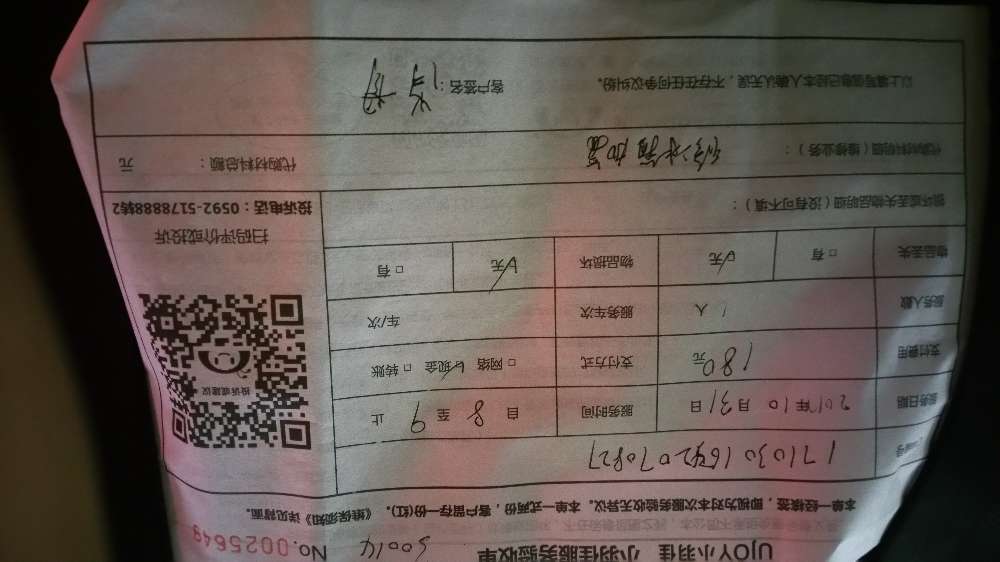 UJOY小羽佳 小羽佳服务验收单 No.0025649
本单一经核签，即视为对本次服务验收无异议。本单一式两份，客户留存一份(红)。《维保须知》详见背面。
服务日期 2017年10月31日 服务时间 自8至9止
支付费用 180元 支付方式 □网络 ☑现金 □转账
服务人数 1人 服务车次 车/次
物品丢失 □有 ☑无 物品损坏 ☑无 □有
损坏或丢失物品明细（没有可不填）：
投诉或建议
扫码评价或投诉
投诉电话：0592-5178888转2
代购材料明细（维修业务）： 修冰箱加 代购材料总额： 元
以上填写信息已经本人确认无误，不存在任何争议纠纷。 客户签名：